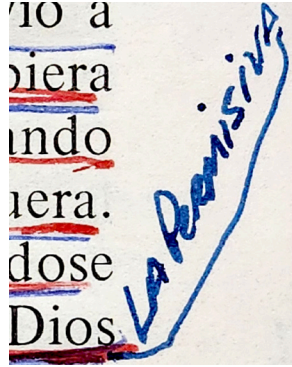 vió a
biera
ando
uera.
dose
Dios
LA PERMISIVA